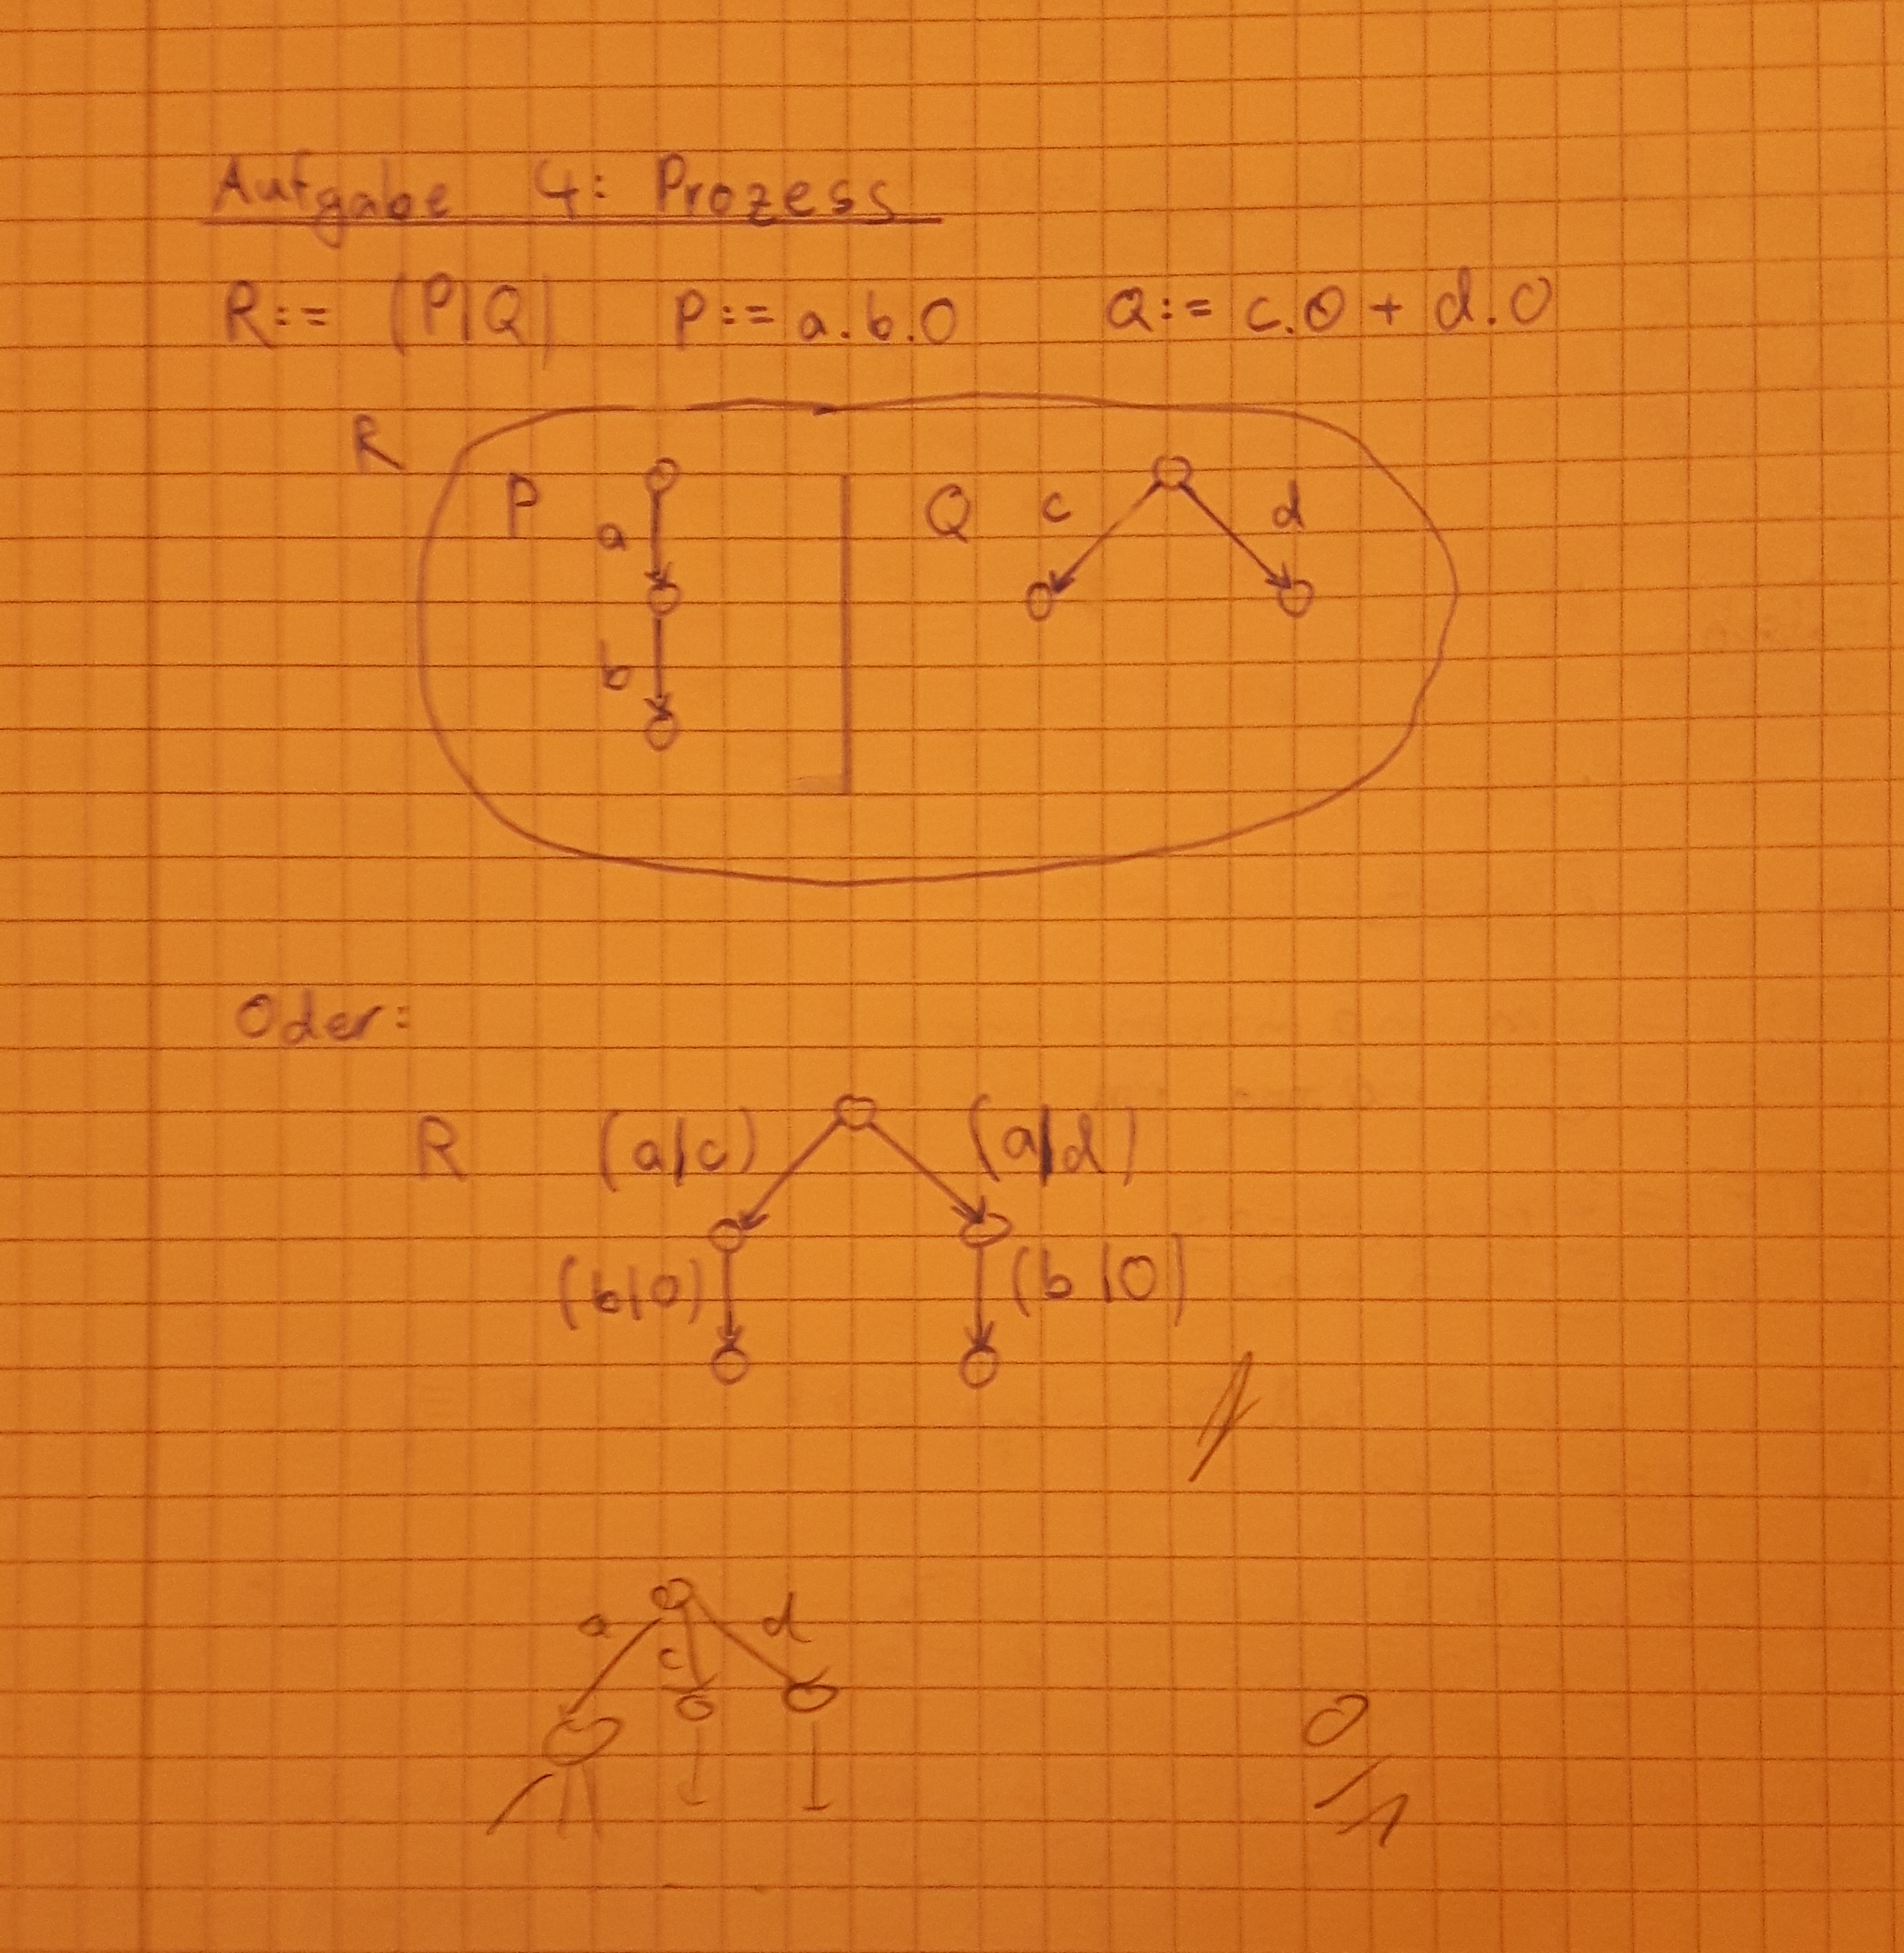 Aufgabe 4: Prozess
R:= (P|Q) P:= a.b.0 Q:= c.0 + d.0
R
P
a
b
Q c d
Oder:
R (a|c) (a|d)
(b|0) (b|0)
a c d
0/1